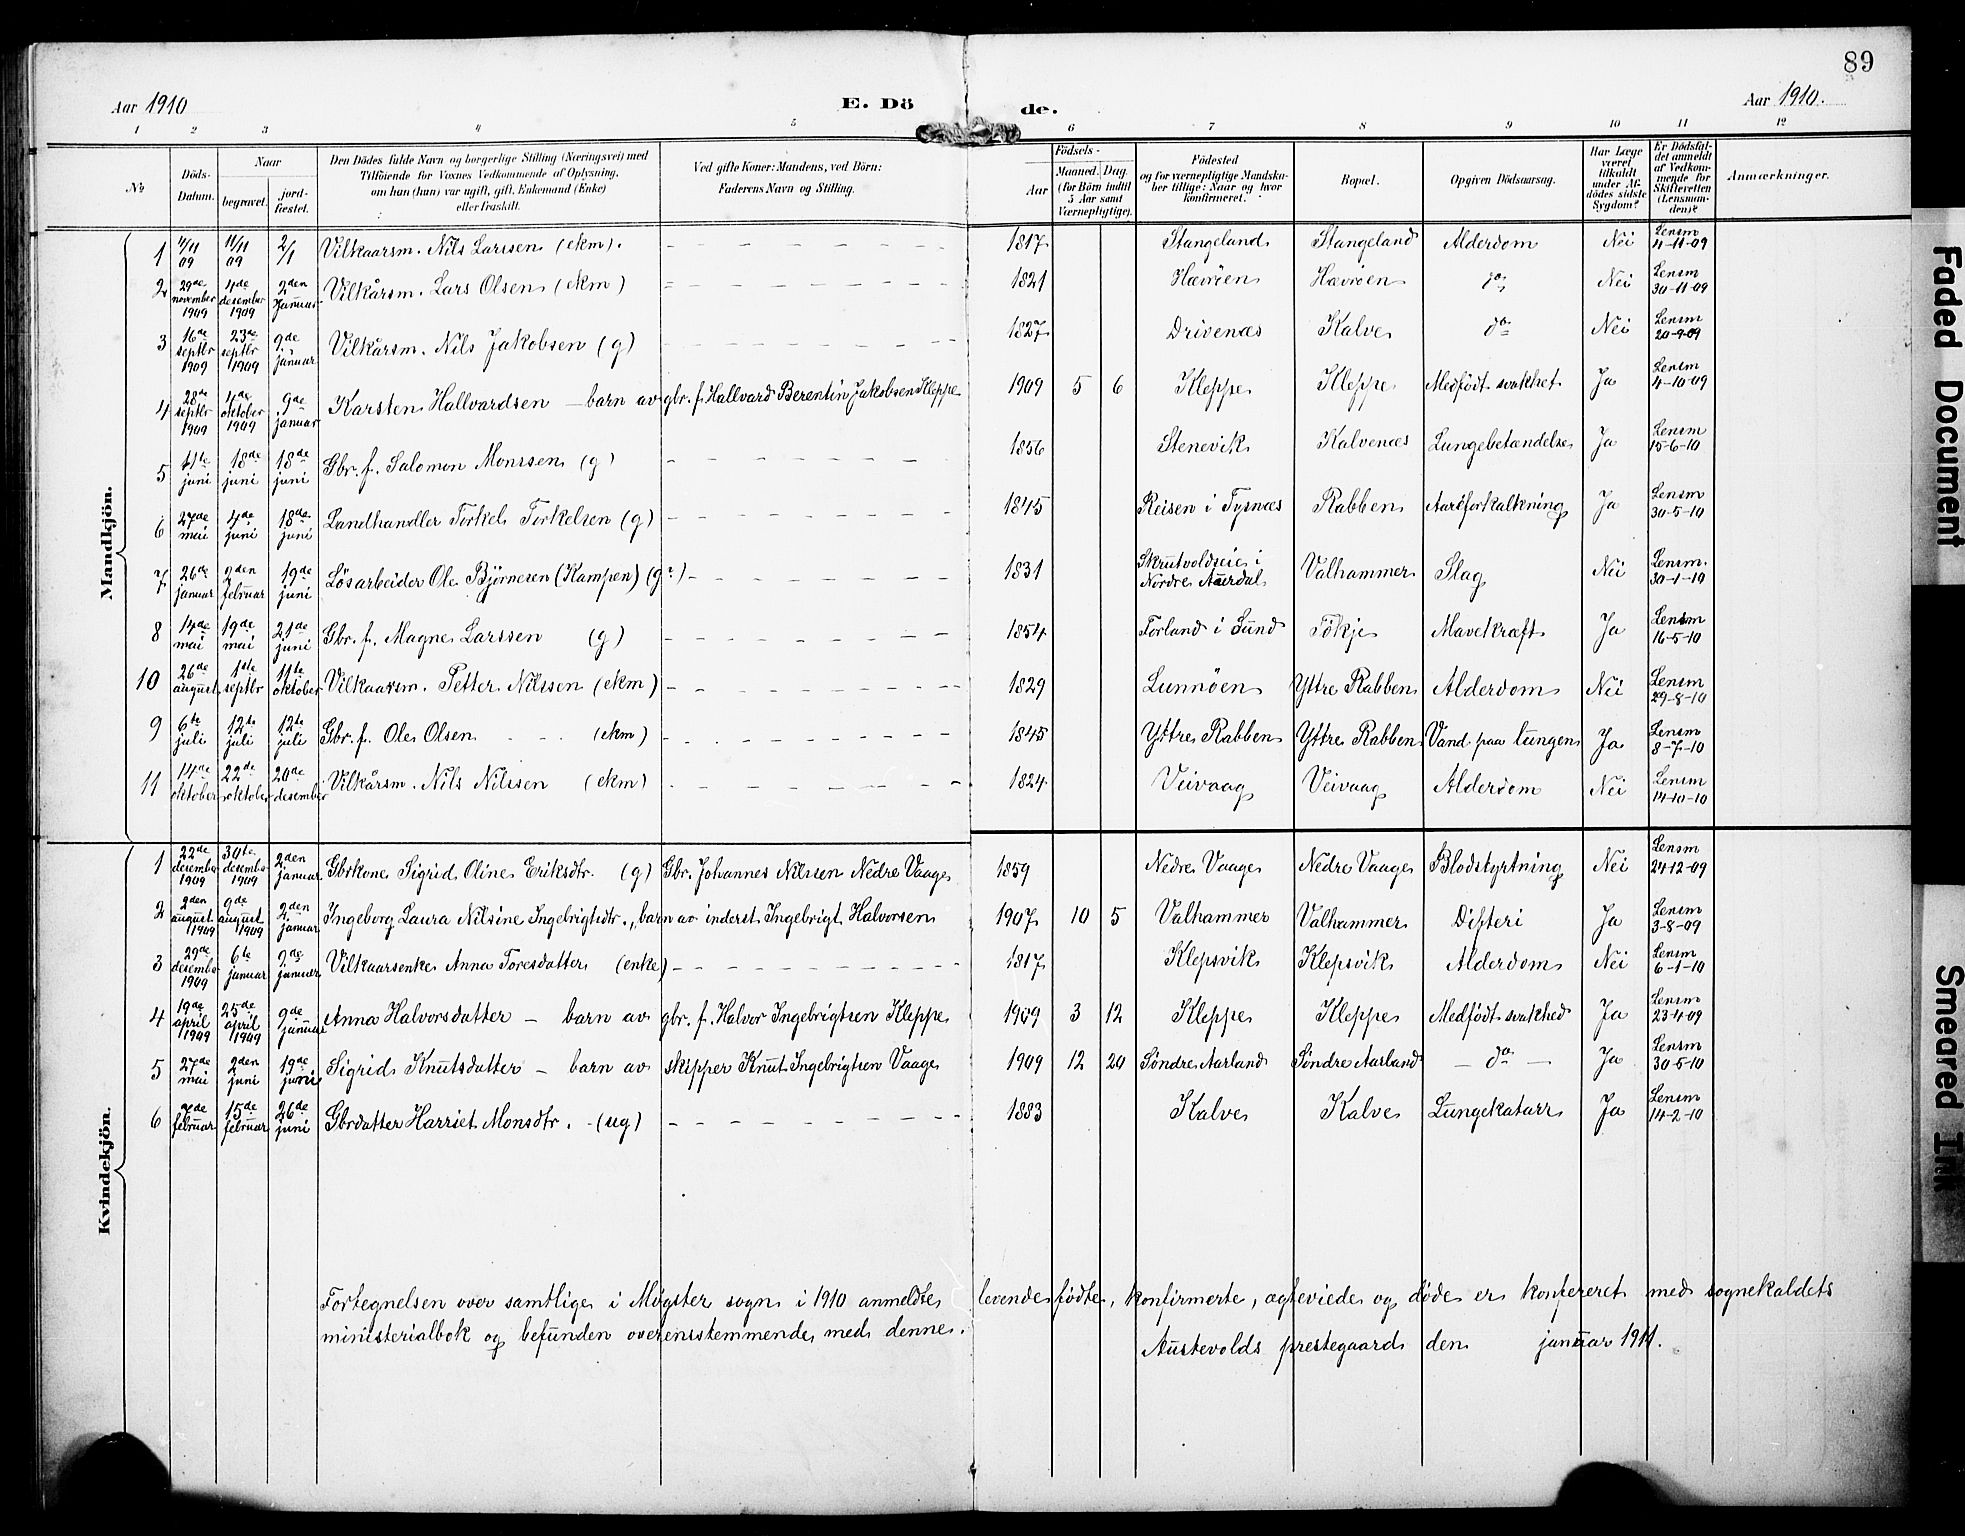 89
Aar 1910
E. Dö de.
Aar 1910.
1 2 3 4 5 6 7 8 9 10 11 12
No
Döds-Datum.
Naar
begravet.
jordfæstet.
Den Dödes fulde Navn og borgerlige Stilling (Næringsvei) med
Tilföiende for Voxnes Vedkommende af Oplysning,
om han (hun) var ugift, gift, Enkemand (Enke)
eller fraskilt.
Ved gifte Koner: Mandens, ved Börn:
Faderens Navn og Stilling.
Födsels-
Aar
Maaned. Dag.
(for Börn indtil
5 Aar samt
Værnepligtige).
Födested
og for værnepligtige Mandskaber tillige: Naar og hvor
konfirmeret.
Bopæl.
Opgiven Dödsaarsag.
Har Læge
været
tilkaldt
under Afdödes sidste
Sygdom?
Er Dödsfaldet anmeldt
af Vedkommende for
Skifteretten
(Lensmanden)?
Anmærkninger.
Mandkjön.
1 4/11 09 11/11 09 2/1 Vilkaarsm. Nils Larssen (ekm). 1817 Stangeland Stangeland Alderdom Nei Lensm 4-11-09
2 29de november 1909 4de desember 1909 2den januar Vilkårsm. Lars Olsen (ekm) 1821 Hævröen Hævröen do Nei Lensm 30-11-09
3 16de septbr 1909 23de septbr 1909 9de januar Vilkårsm. Nils Jakobsen (g) 1827 Drivenæs Kalve do Nei Lensm 20-9-09
4 28de septbr 1909 4de oktober 1909 9de januar Karsten Hallvardsen – barn av gbr. f. Hallvard Berentin Jakobsen Kleppe 1909 5 6 Kleppe Kleppe Medfödt svakhet Ja Lensm 4-10-09
5 11te juni 18de juni 18de juni Gbr. f. Salomon Monssen (g) 1856 Stenevik Kalvenæs Lungebetændelse Ja Lensm 15-6-10
6 27de mai 4de juni 18de juni Landhandler Torkel Torkelsen (g) 1845 Reisen i Tysnæs Rabben Aareforkalkning Ja Lensm 30-5-10
7 26de januar 2den februar 19de juni Lösarbeider Ole Björnesen (Kampen) (g?) 1831 Skrutvoldseie i Nordre Aurdal Valhammer Slag Nei Lensm. 30-1-10
8 14de mai 19de mai 21de juni Gbr. f. Magne Larssen (g) 1854 Forland i Sund Tökje Mavekræft Ja Lensm 16-5-10
10 26de august 1ste septbr 11te oktober Vilkaarsm. Petter Nilssen (ekm) 1829 Lunnöen Yttre Rabben Alderdom Nei Lensm 29-8-10
9 6te juli 12te juli 12te juli Gbr. f. Ole Olsen (ekm) 1845 Yttre Rabben Yttre Rabben Vand paa lungen Ja Lensm 8-7-10
11 14de oktober 22de oktober 20de desember Vilkårsm. Nils Nilssen (ekm) 1824 Veivaag Veivaag Alderdom Nei Lensm 14-10-10
Kvindekjön.
1 22de desembe 1909 30te desembe 1909 2den januar Gbrkone Sigrid Oline Eriksdtr. (g) Gbr. Johannes Nilssen Nedre Vaage 1859 Nedre Vaage Nedre Vaage Blodstyrtning Nei Lensm 24-12-09
2 2den august 1909 9de august 1909 2den januar Ingeborg Laura Nilsine Ingebrigtsdtr., barn av inderst Ingebrigt Halvorsen 1907 10 5 Valhammer Valhammer Difteri Ja Lensm 3-8-09
3 29de desembe 1909 6te januar 9de januar Vilkaarsenke Anna Toresdatter (enke) 1817 Klepsvik Klepsvik Alderdom Nei Lensm 6-1-10
4 19de april 1909 25de april 1909 9de januar Anna Halvorsdatter – barn av gbr. f. Halvor Ingebrigtsen Kleppe 1909 3 12 Kleppe Kleppe Medfödt svakhed Ja Lensm 23-4-09
5 27de mai 2den juni 19de juni Sigrid Knutsdatter – barn av skipper Knut Ingebrigtsen Vaage 1909 12 20 Söndre Aarland Söndre Aarland – do – Ja Lensm 30-5-10
6 7de februar 15de februar 26de juni Gbrdatter Harriet Monsdtr. - (ug) 1883 Kalve Kalve Lungekatarr Ja Lensm 14-2-10
Fortegnelsen over samtlige i Møgster sogn i 1910 anmeldte levende födte, konfirmerte, egteviede og döde er konfereret med sognekaldets
ministerialbok og befunden overensstemmende med denne.
Austevolds prestegaard den januar 1911.
Faded Document
Smeared Ink